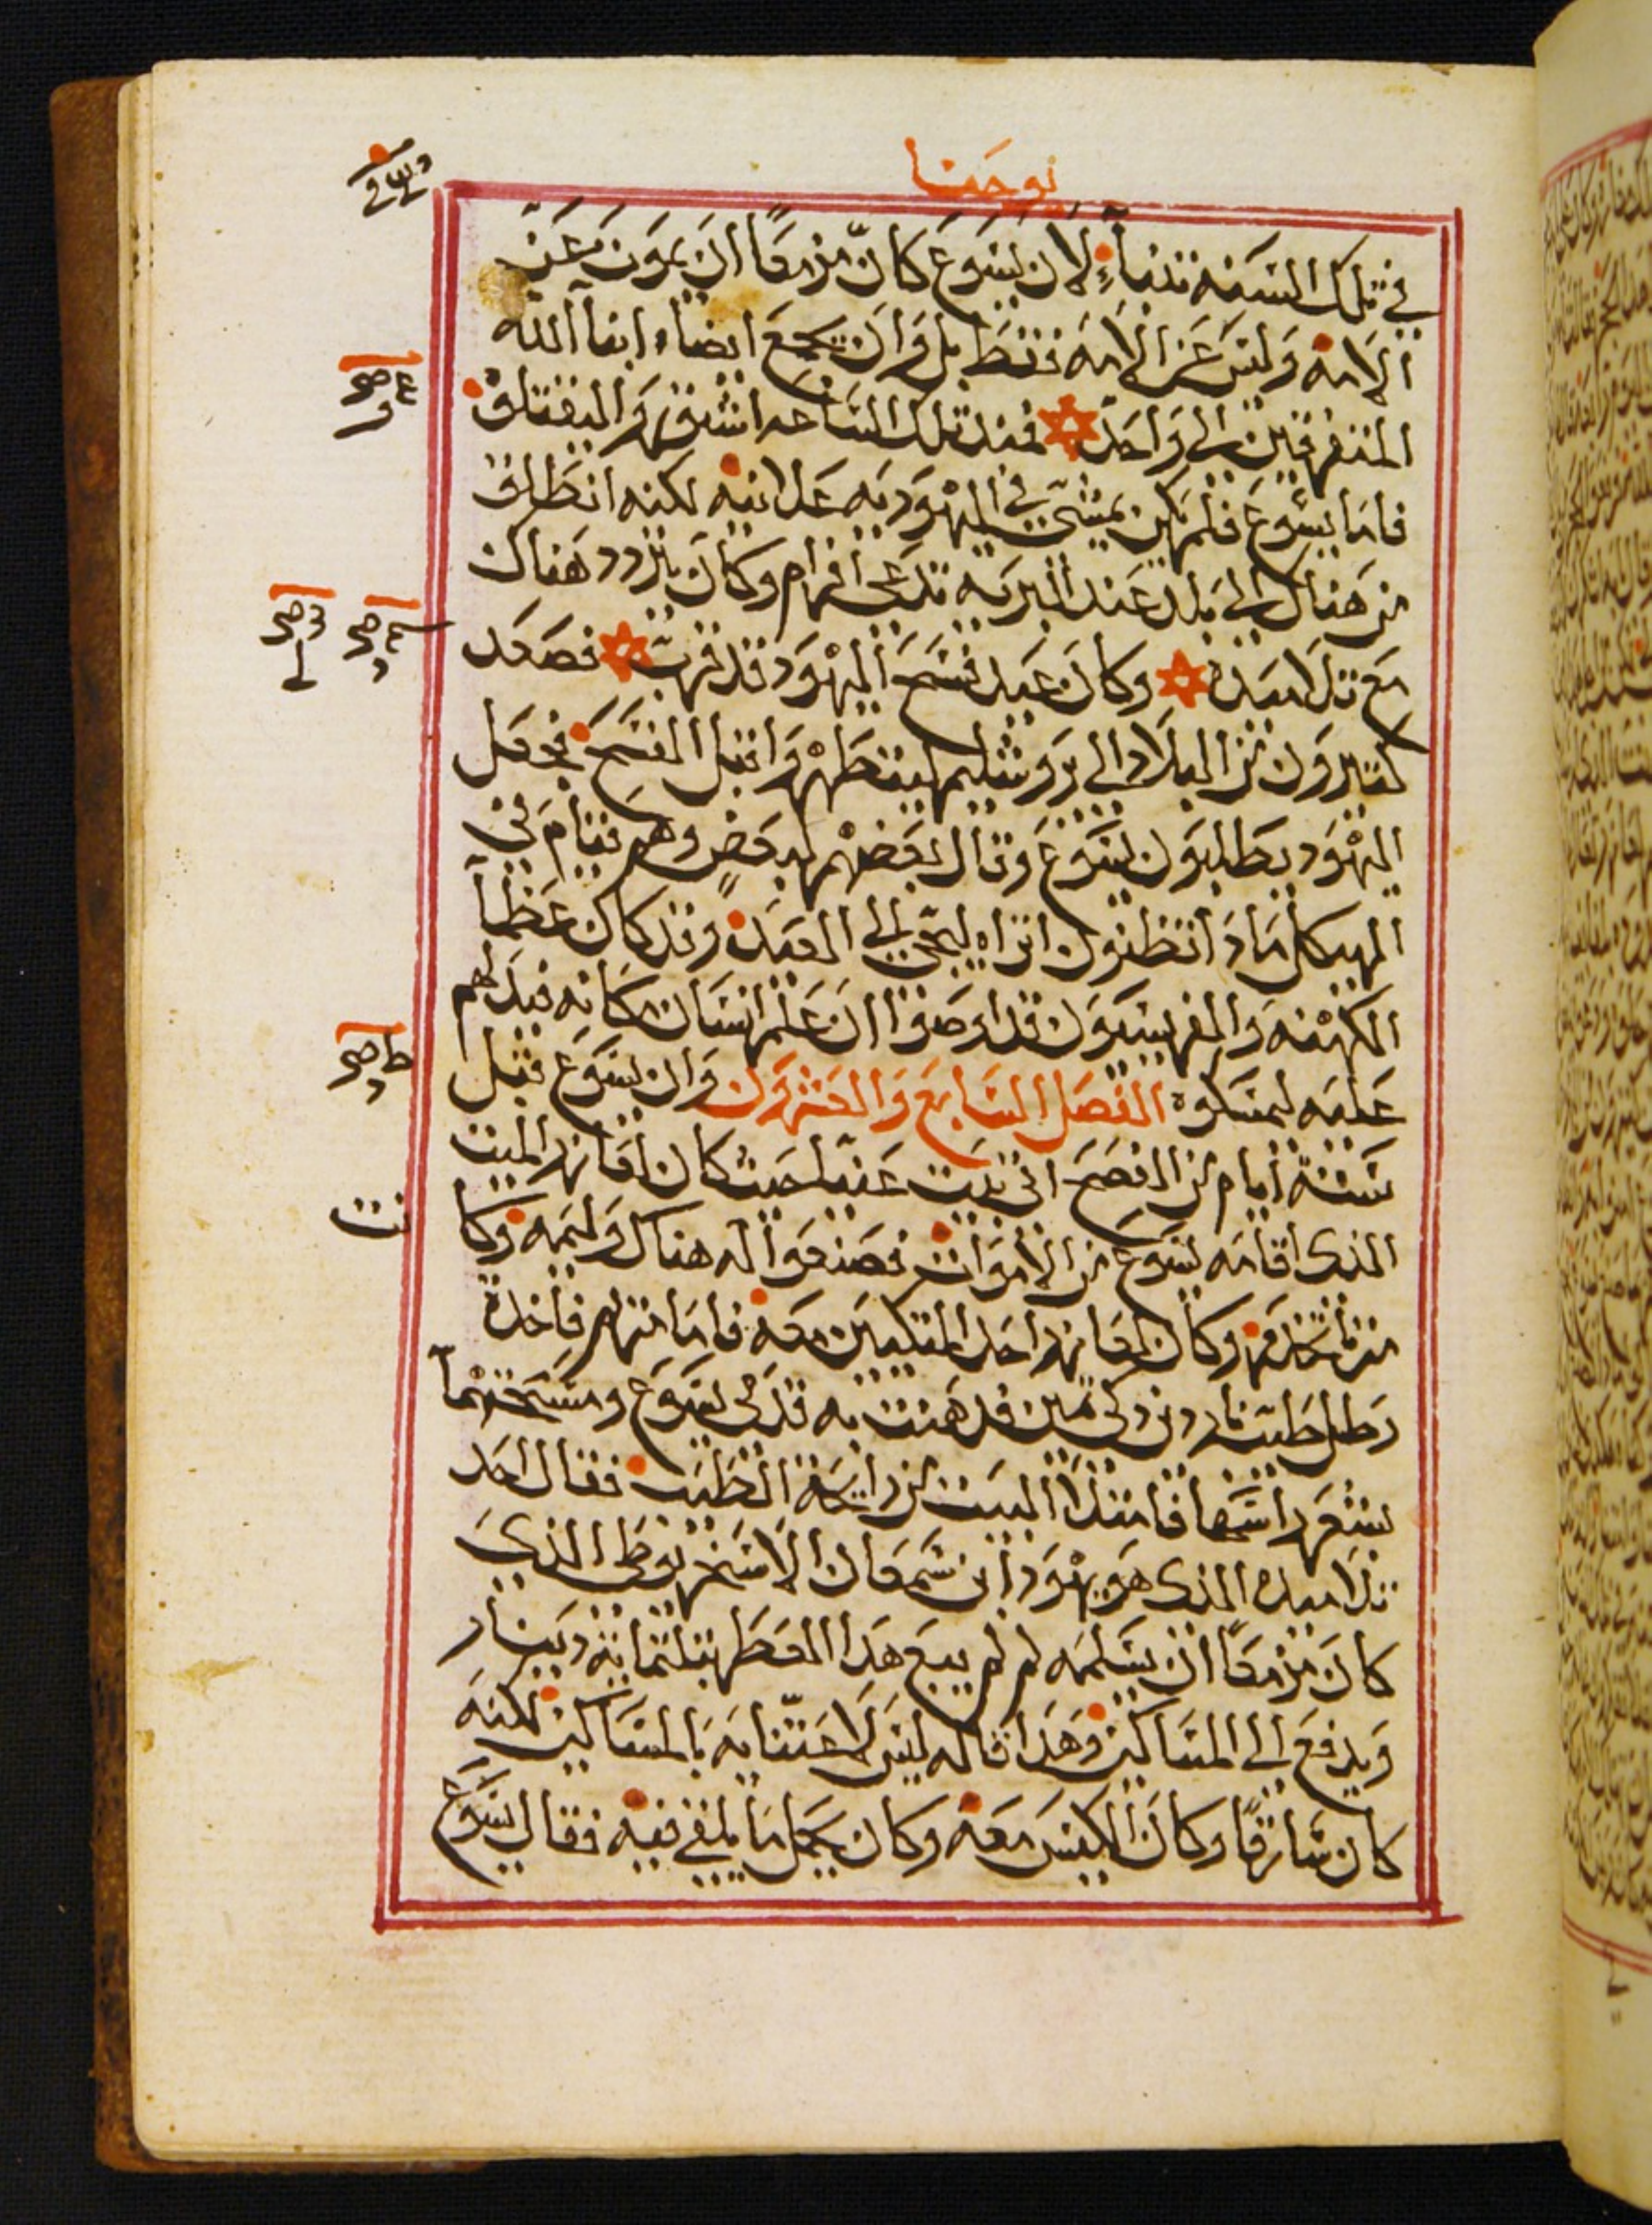 يوحنا
في تلك السنة تنبأ لان يسوع كان مزمعًا ان يموت عن
الامة وليس عن الامة فقط بل وان يجمع ايضا ابنا الله
المتفرقين الى واحد فمند تلك الساعه اشتوروا ليقتلوه
فاما يسوع فلم يكن يمشي في اليهودية علانيه لكنه انطلق
من هناك الى بلد عند البرية تدعى افرام وكان يتردد هناك
مع تلاميده وكان عيد فسح اليهود قد قرب فصعد
كتيرون من البلاد الى يروشليم ليتطهروا قبل الفسح فجعل
اليهود يطلبون يسوع وقال بعضهم لبعض وهم قيام في
الهيكل مادا تظنون اتراه ليجي الى العيد وقد كان عظما
الكهنه والفريسيون قد اوصوا ان علم انسان مكانه فيدلهم
عليه ليمسكوه الفصل السابع والعشرون وان يسوع قبل
ستة ايام من الفصح اتى بيت عنيا حيث كان لعازر الميت
الذي اقامه يسوع من الاموات فصنعوا له هناك وليمه وكا
مرثا تخدم وكان لعازر احد المتكيين معه فاما مريم فاخدة
رطل طيب ناردين زكي ثمين فدهنت به قدمي يسوع ومسحتهما
بشعر راسها فامتلا البيت من رايحة الطيب فقال احد
تلاميده الذي هو يهودا ابن سمعان الاسخريوطي الذي
كان مزمعًا ان يسلمه لم لم يبع هدا العطر بتلتماية دينار
ويدفع الى المساكين وهدا قاله ليس لاعتنايه بالمساكين لكنه
كان سارقًا وكان الكيس معه وكان يحمل ما يلقي فيه فقال يسوع